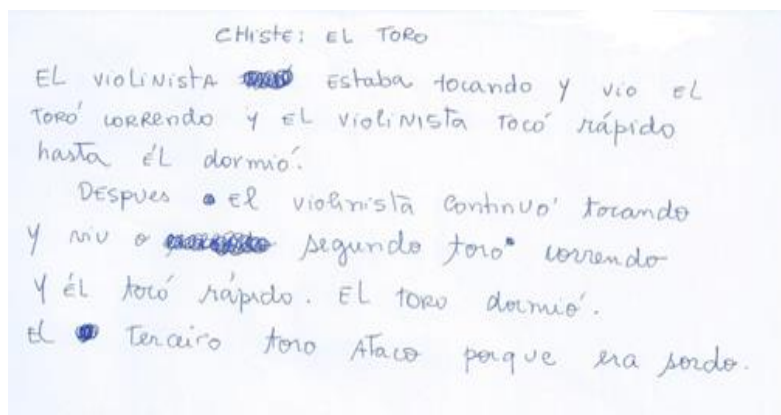 CHISTE: EL TORO
EL VIOLINISTA ESTABA tocando y vio EL
TORO CORRENDO y EL VIOLINISTA TOCÓ rápido
hasta ÉL dormió.
DESPUES El violinista continuó tocando
y viu o segundo toro correndo
y ÉL tocó rápido. EL TORO dormió.
EL Terceiro toro ATACO porque era sordo.